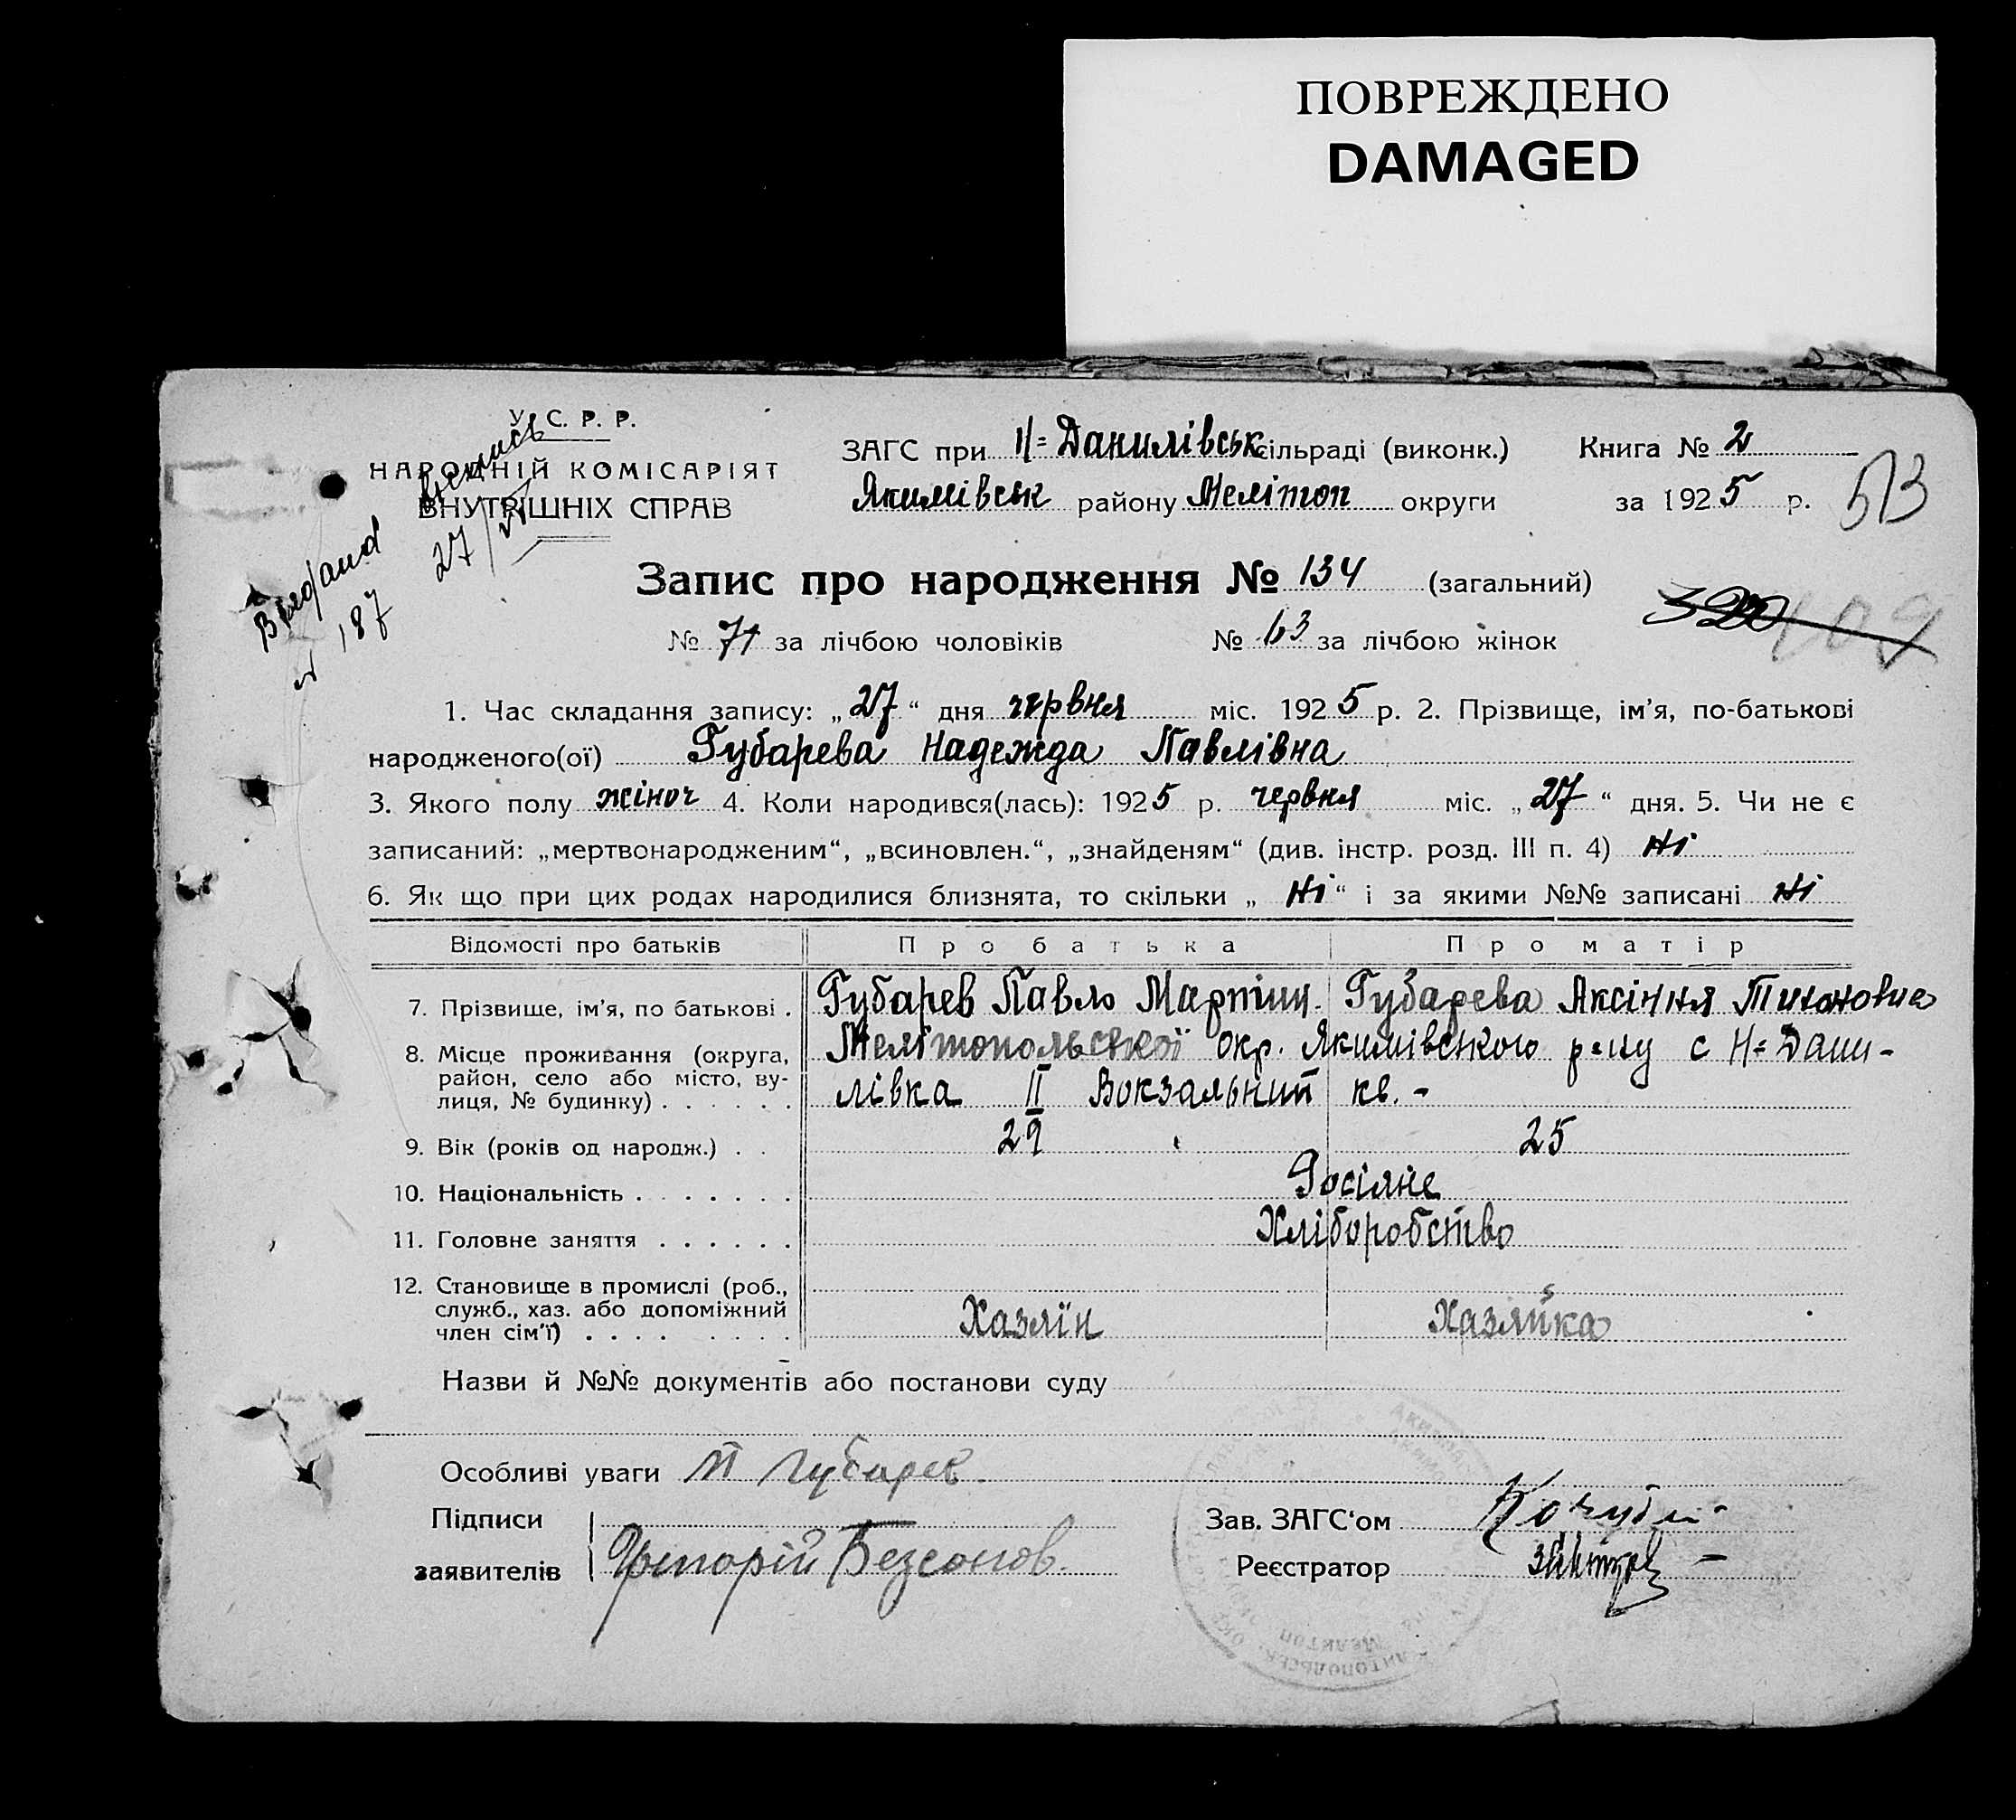 ПОВРЕЖДЕНО
DAMAGED
У. С. Р. Р.
НАРОДНІЙ КОМІСАРІЯТ
ВНУТРІШНІХ СПРАВ
27/VI
187
ЗАГС при Н=Данилівськ сільраді (виконк.) Книга № 2
Якимівськ району Мелітоп округи за 1925 р.
513
Запис про народження № 134 (загальний)
№ 71 за лічбою чоловіків № 63 за лічбою жінок
320 109
1. Час складання запису: „27“ дня червня міс. 1925 р. 2. Прізвище, ім’я, по-батькові
народженого(ої) Губарева Надежда Павлівна
3. Якого полу жіноч 4. Коли народився(лась): 1925 р. червня міс. „27“ дня. 5. Чи не є
записаний: „мертвонародженим“, „всиновлен.“, „знайденям“ (див. інстр. розд. III п. 4) Ні
6. Як що при цих родах народилися близнята, то скільки „Ні“ і за якими №№ записані Ні
Відомості про батьків Про батька Про матір
7. Прізвище, ім’я, по батькові . Губарев Павло Мартин. Губарева Аксіння Тихоновна
8. Місце проживання (округа, Мелітопольської окр. Якимівського р-ну с Н=Дани-
район, село або місто, ву-
лиця, № будинку) . . . . . . лівка II Вокзальний кв. -
9. Вік (років од народж.) . . 29 25
10. Національність . . . . . . . Росіяне
11. Головне заняття . . . . . . Хліборобство
12. Становище в промислі (роб.,
служб., хаз. або допоміжний
член сім’ї) . . . . . . . . Хазяїн Хазяйка
Назви й №№ документів або постанови суду
Особливі уваги П Губарев
Підписи Зав. ЗАГС‘ом Кочубей
заявителів Григорій Безсонов. Реєстратор